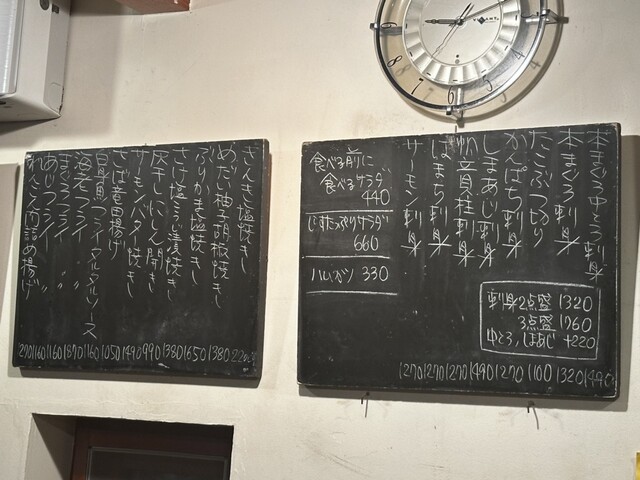 本まぐろ中とろ刺身
本まぐろ刺身
たこぶつ切り
かんぱち刺身
しまあじ刺身
小音貝柱刺身
はまち刺身
サーモン刺身
1270 1270 1270 1490 1270 1100 1320
食べる前に
食べるサラダ
440
660
ハムカツ 330
刺身2点盛 1320
3点盛 1760
中とろ、しまあじ +220
きんき塩焼き
めだい柚子胡椒焼き
ぶりかま塩焼き
さけ塩こうじ漬焼き
灰干しにしん開き
サーモンバター焼き
さば竜田揚げ
白身魚フライタルタルソース
海老フライ 〃
まぐろフライ 〃
あじフライ 〃
1160 1160 1870 1160 1050 1490 990 1380 1650 1380